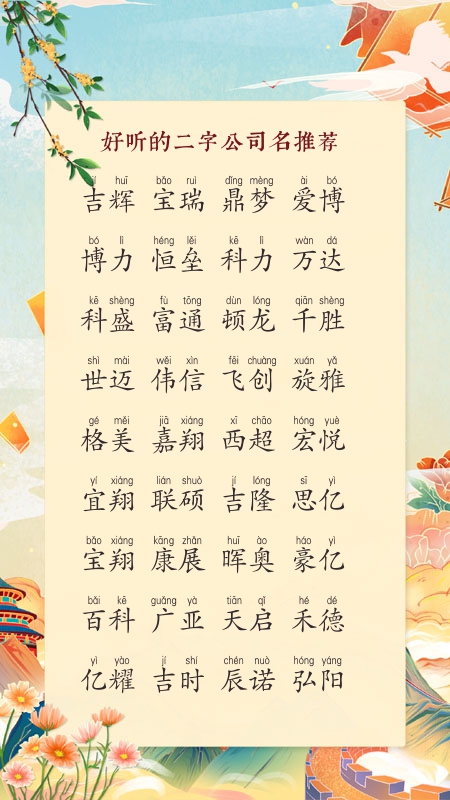 好听的二字公司名推荐
jí huī bǎo ruì dǐng mèng ài bó
吉辉 宝瑞 鼎梦 爱博
bó lì héng lěi kē lì wàn dá
博力 恒垒 科力 万达
kē shèng fù tōng dùn lóng qiān shèng
科盛 富通 顿龙 千胜
shì mài wěi xìn fēi chuàng xuán yǎ
世迈 伟信 飞创 旋雅
gé měi jiā xiáng xī chāo hóng yuè
格美 嘉翔 西超 宏悦
yí xiáng lián shuò jí lóng sī yì
宜翔 联硕 吉隆 思亿
bǎo xiáng kāng zhǎn huī ào háo yì
宝翔 康展 晖奥 豪亿
bǎi kē guǎng yà tiān qǐ hé dé
百科 广亚 天启 禾德
yì yào jí shí chén nuò hóng yáng
亿耀 吉时 辰诺 弘阳